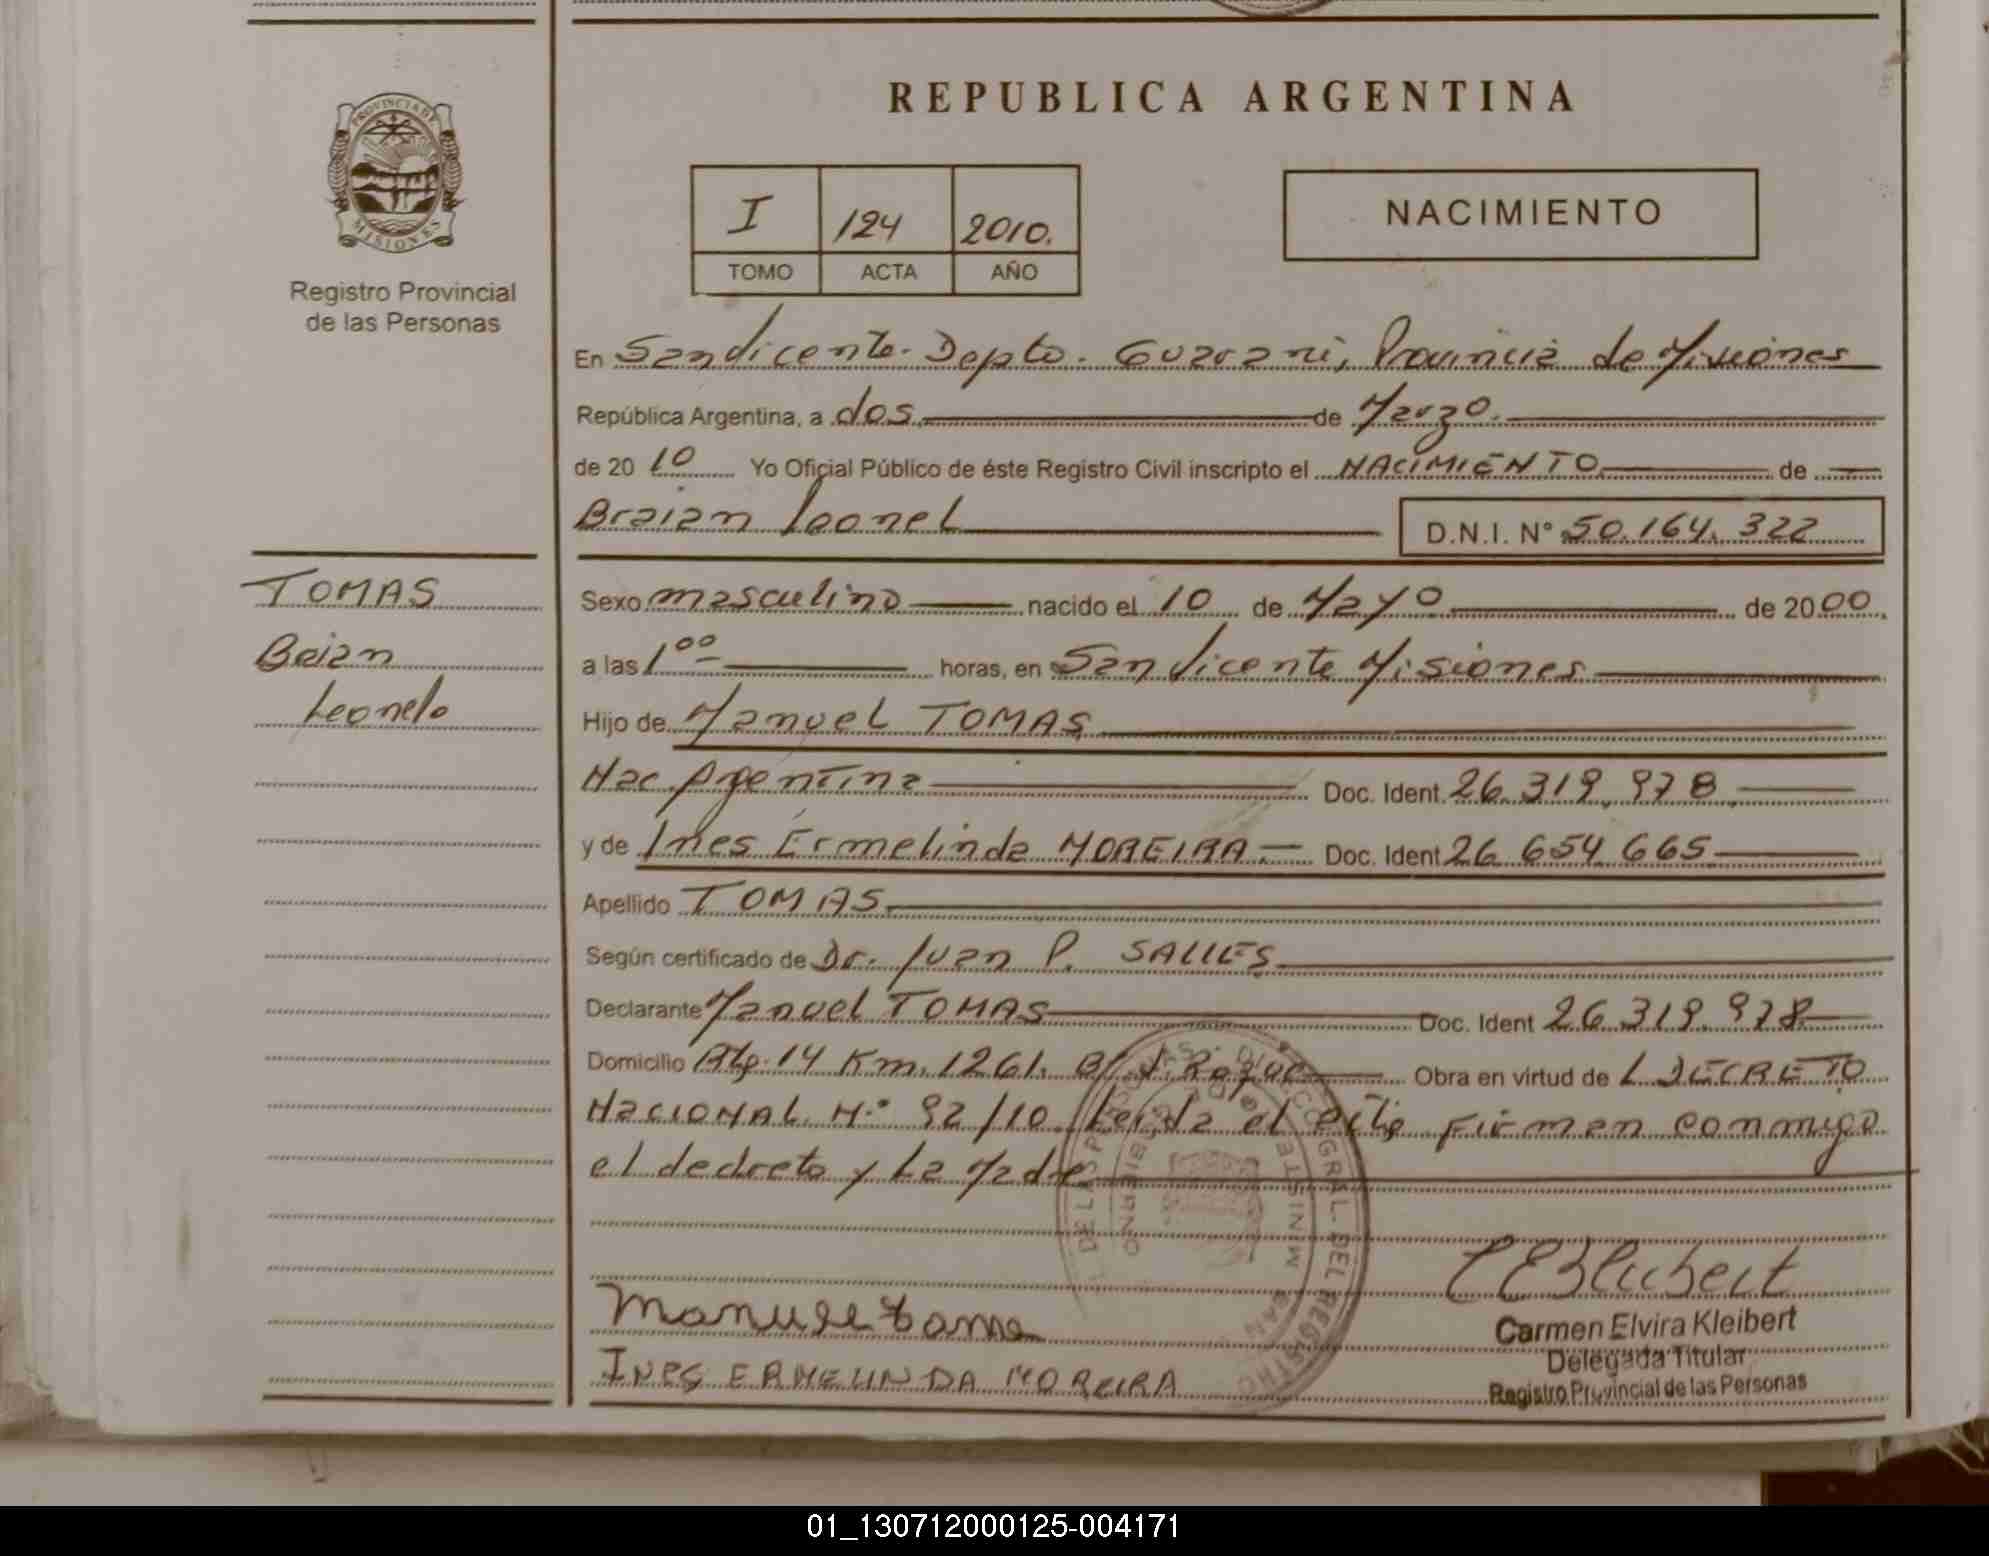 REPUBLICA ARGENTINA
PROVINCIA DE
MISIONES
Registro Provincial
de las Personas
I 124 2010.
TOMO ACTA AÑO
NACIMIENTO
En San Vicente. Depto. Guarani, Provincia de Misiones
República Argentina, a dos de Marzo.
de 20 10 Yo Oficial Público de éste Registro Civil inscripto el NACIMIENTO de
Braian Leonel D.N.I. Nº 50.164.322
TOMAS
Braian
Leonel
Sexo masculino nacido el 10 de Mayo de 20 00
a las 1 00 horas, en San Vicente Misiones
Hijo de Manuel TOMAS
Nac. Argentina Doc. Ident. 26.319.978
y de Ines Ermelinda MOREIRA.- Doc. Ident 26 654 665
Apellido TOMAS
Según certificado de Dr. Juan P. SALLES
Declarante Manuel TOMAS Doc. Ident 26.319.978
Domicilio Km. 1261. Obra en virtud de L DECRETO
NACIONAL N.º 92/10. Leida el acta Firman conmigo
el decreto y La Madre
DEL REGISTRO
Manuel
INES ERMELINDA MOREIRA
Carmen Elvira Kleibert
Delegada Titular
Registro Provincial de las Personas
01_130712000125-004171